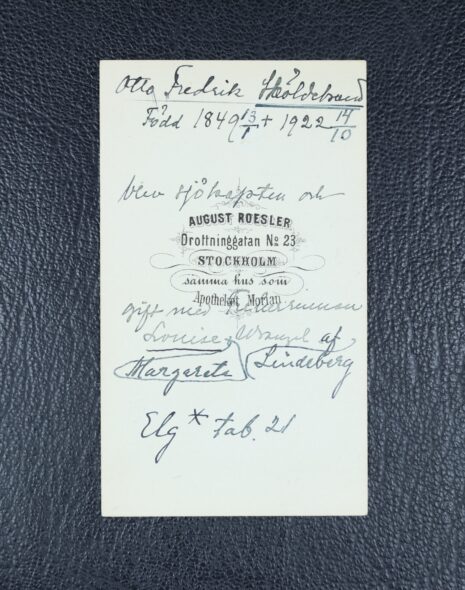 Otto Fredrik Sköldebrand
Född 1849 13/1 + 1922 14/10
blev sjökapten och
AUGUST ROESLER
Drottninggatan No 23
STOCKHOLM
samma hus som
Apotheket Morian
gift med
Louise Wrangel af
Margareta Lindeberg
Elg * tab. 21